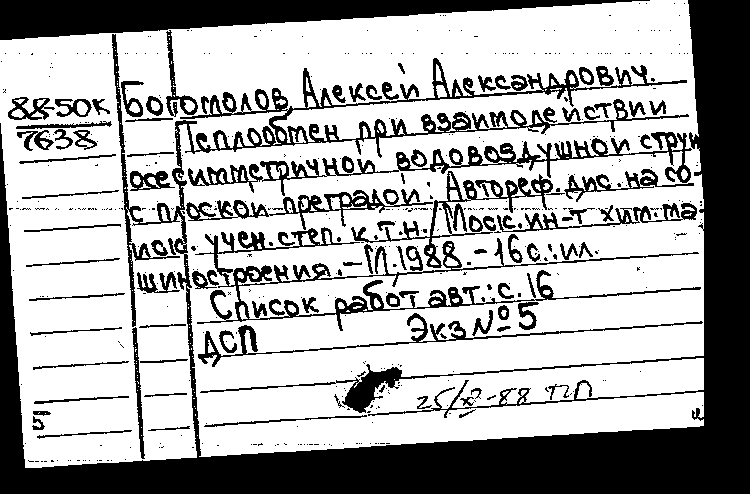 88-50к
7638
Богомолов, Алексей Александрович.
Теплообмен при взаимодействии
осесимметричной водовоздушной струи
с плоской преградой: Автореф. дис. на со-
иск. учен. степ. к.т.н./Моск. ин-т хим. ма-
шиностроения.-М.,1988.-16с.:ил.
Список работ авт.: с. 16
ДСП Экз №5
5